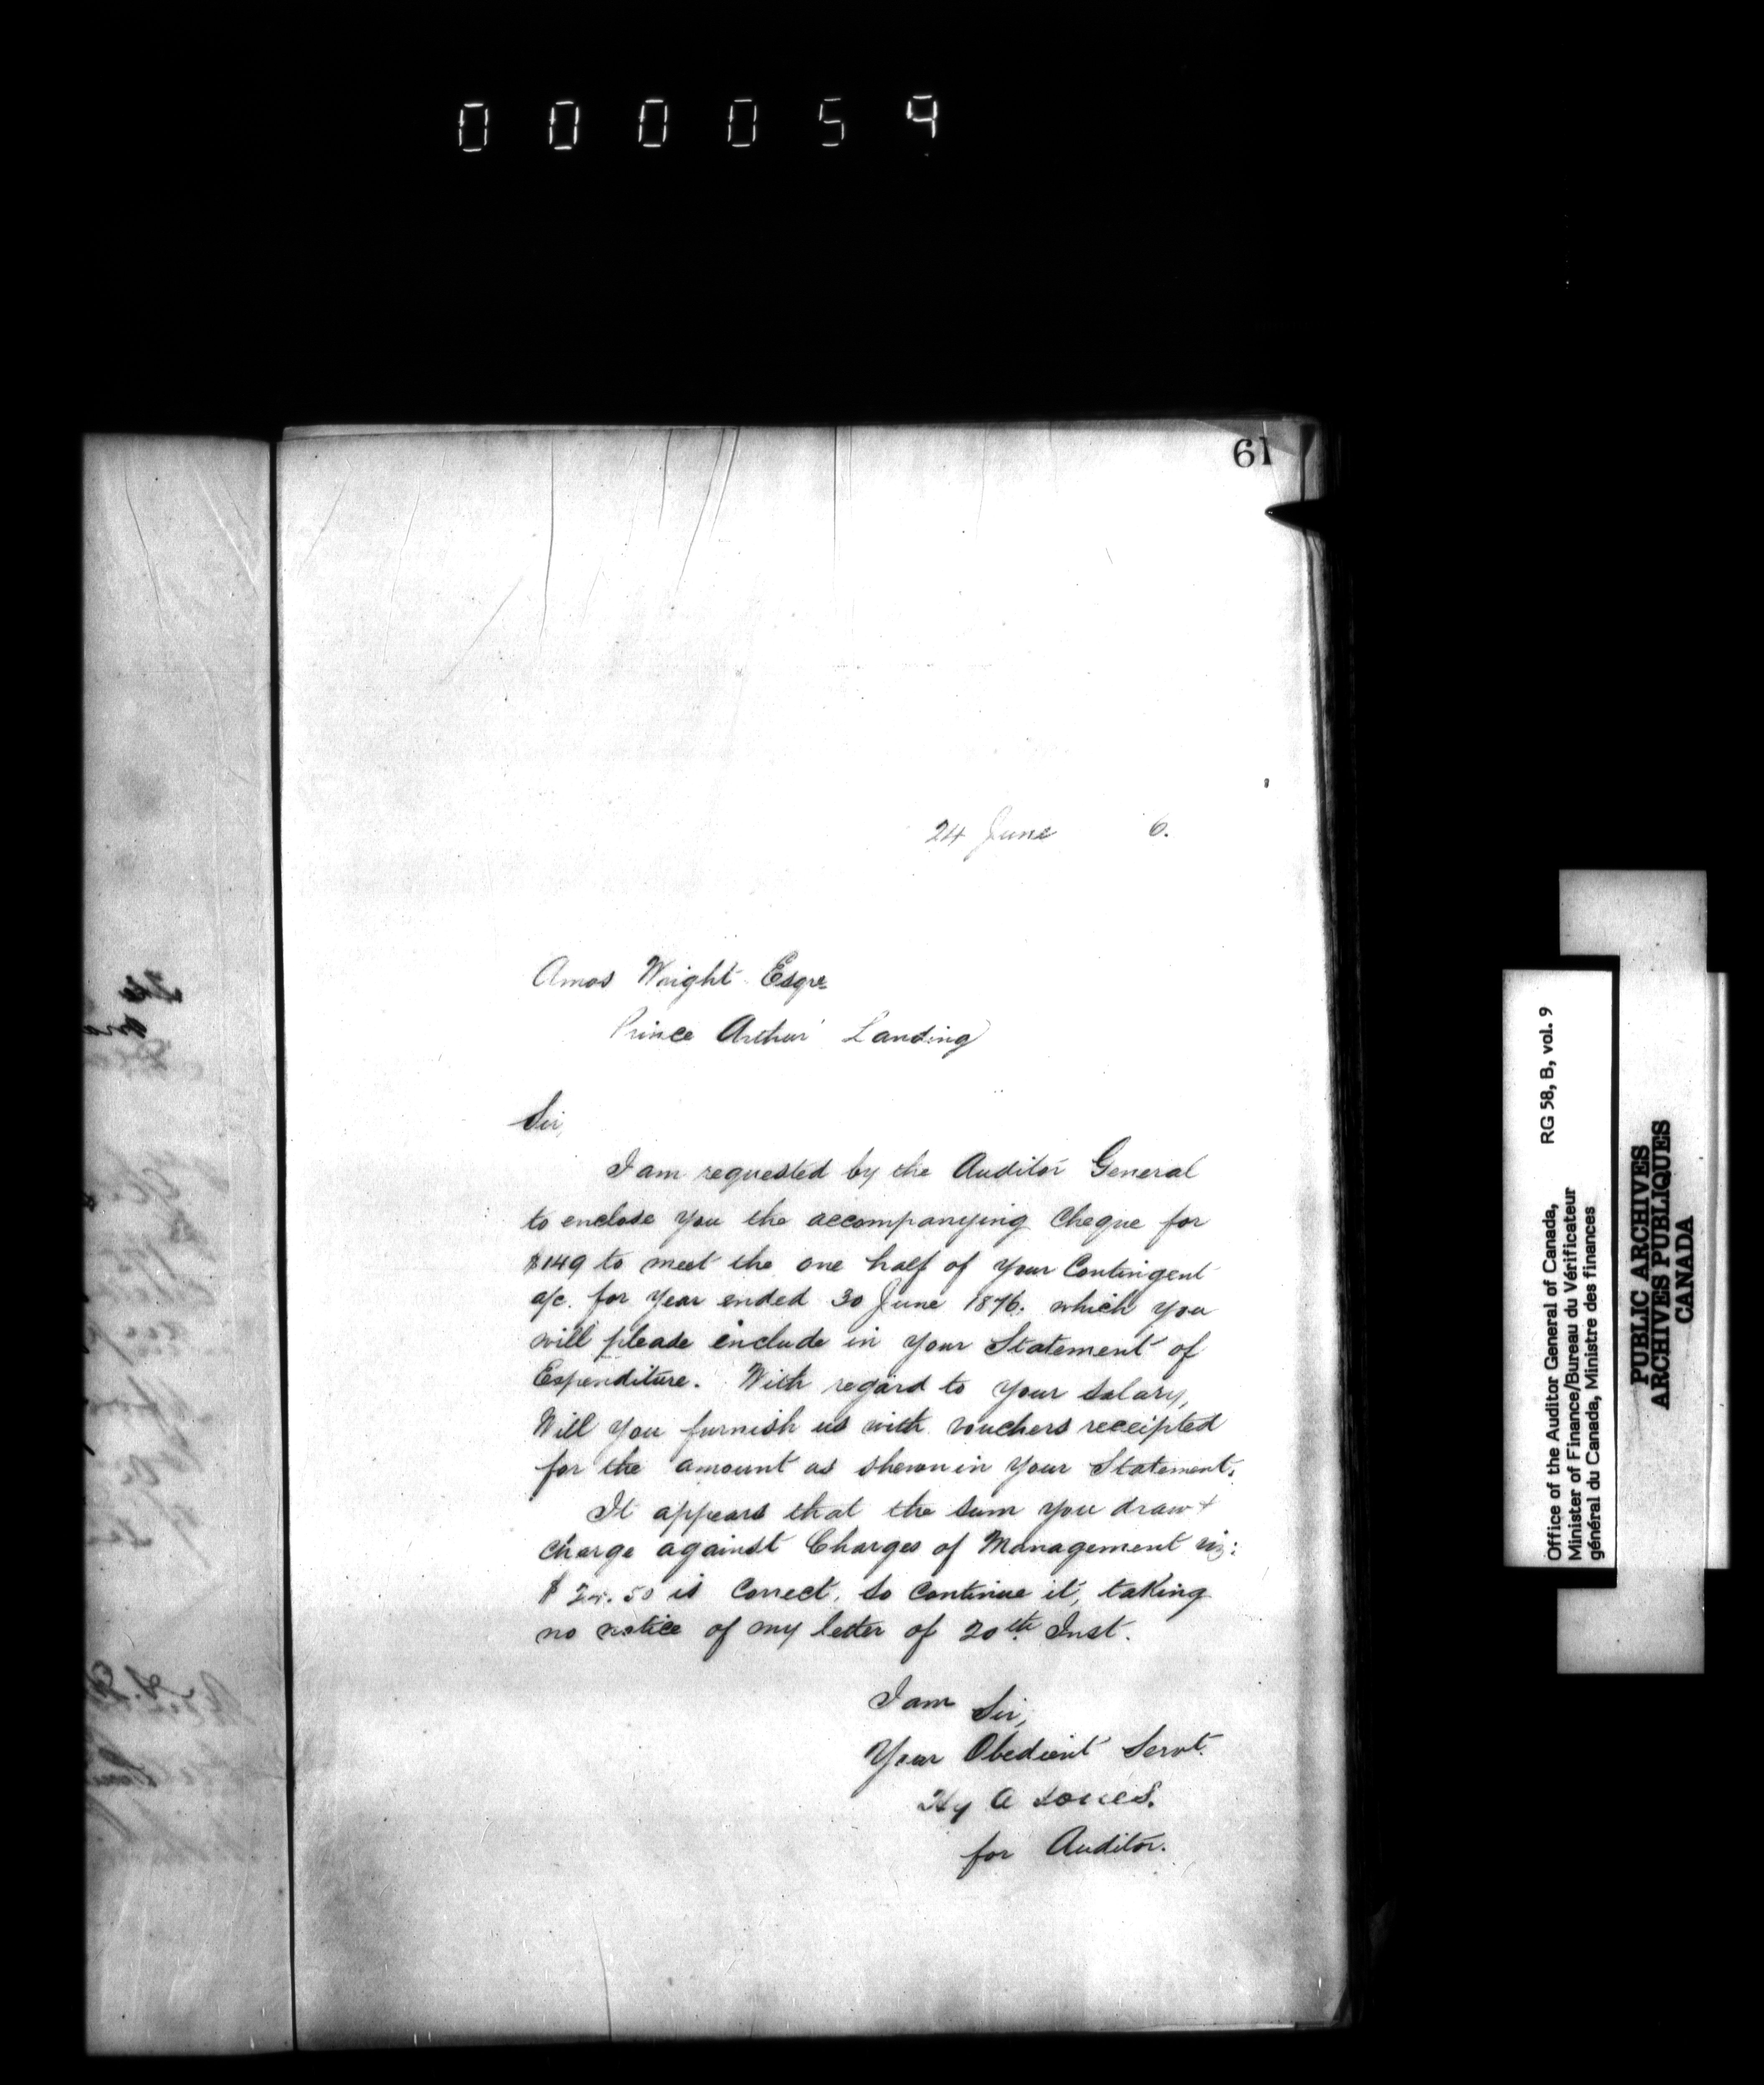 000059
61
24 June 6.
Amos Wright Esqre
Prince Arthur' Landing
Sir,
I am requested by the Auditor General
to enclose you the accompanying Cheque for
$149 to meet the one half of your Contingent
a/c. for year ended 30 June 1876. which you
will please include in your Statement of
Expenditure. With regard to your salary,
Will you furnish us with vouchers receipted
for the amount as shewn in your Statement.
It appears that the sum you draw +
charge against Charges of Management viz:
is Correct, so Continue it, taking
no notice of my letter of 20th Inst.
I am Sir,
Your Obedient Servt.
Hy A Jones.
for Auditor.
Office of the Auditor General of Canada, RG 58, B, vol. 9
Minister of Finance/Bureau du Vérificateur
général du Canada, Ministre des finances
PUBLIC ARCHIVES
ARCHIVES PUBLIQUES
CANADA